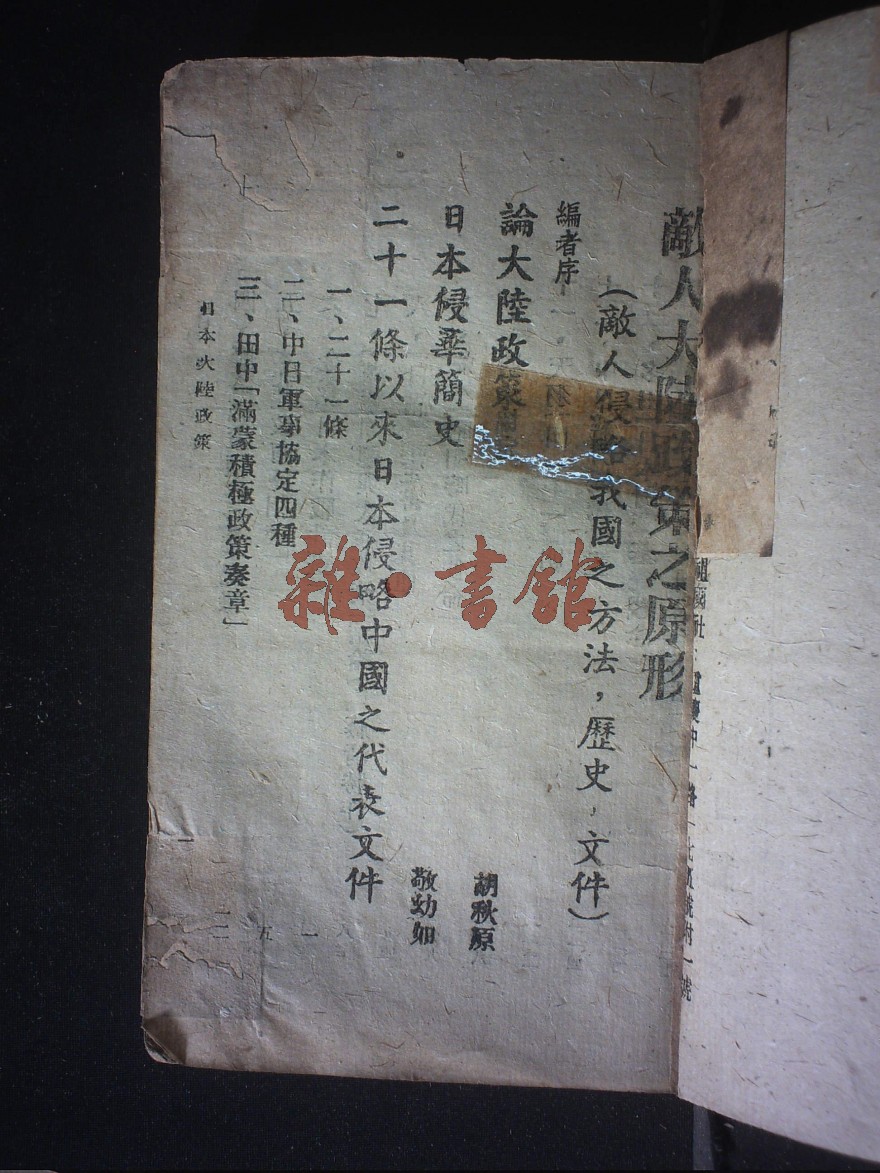 敵人大陸政策之原形
（敵人侵略我國之方法，歷史，文件）
編者序
論大陸政策 胡秋原
日本侵華簡史 敬幼如
二十一條以來日本侵略中國之代表文件
一、二十一條
二、中日軍事協定四種
三、田中「滿蒙積極政策奏章」
日本大陸政策
一五一
雜·書館